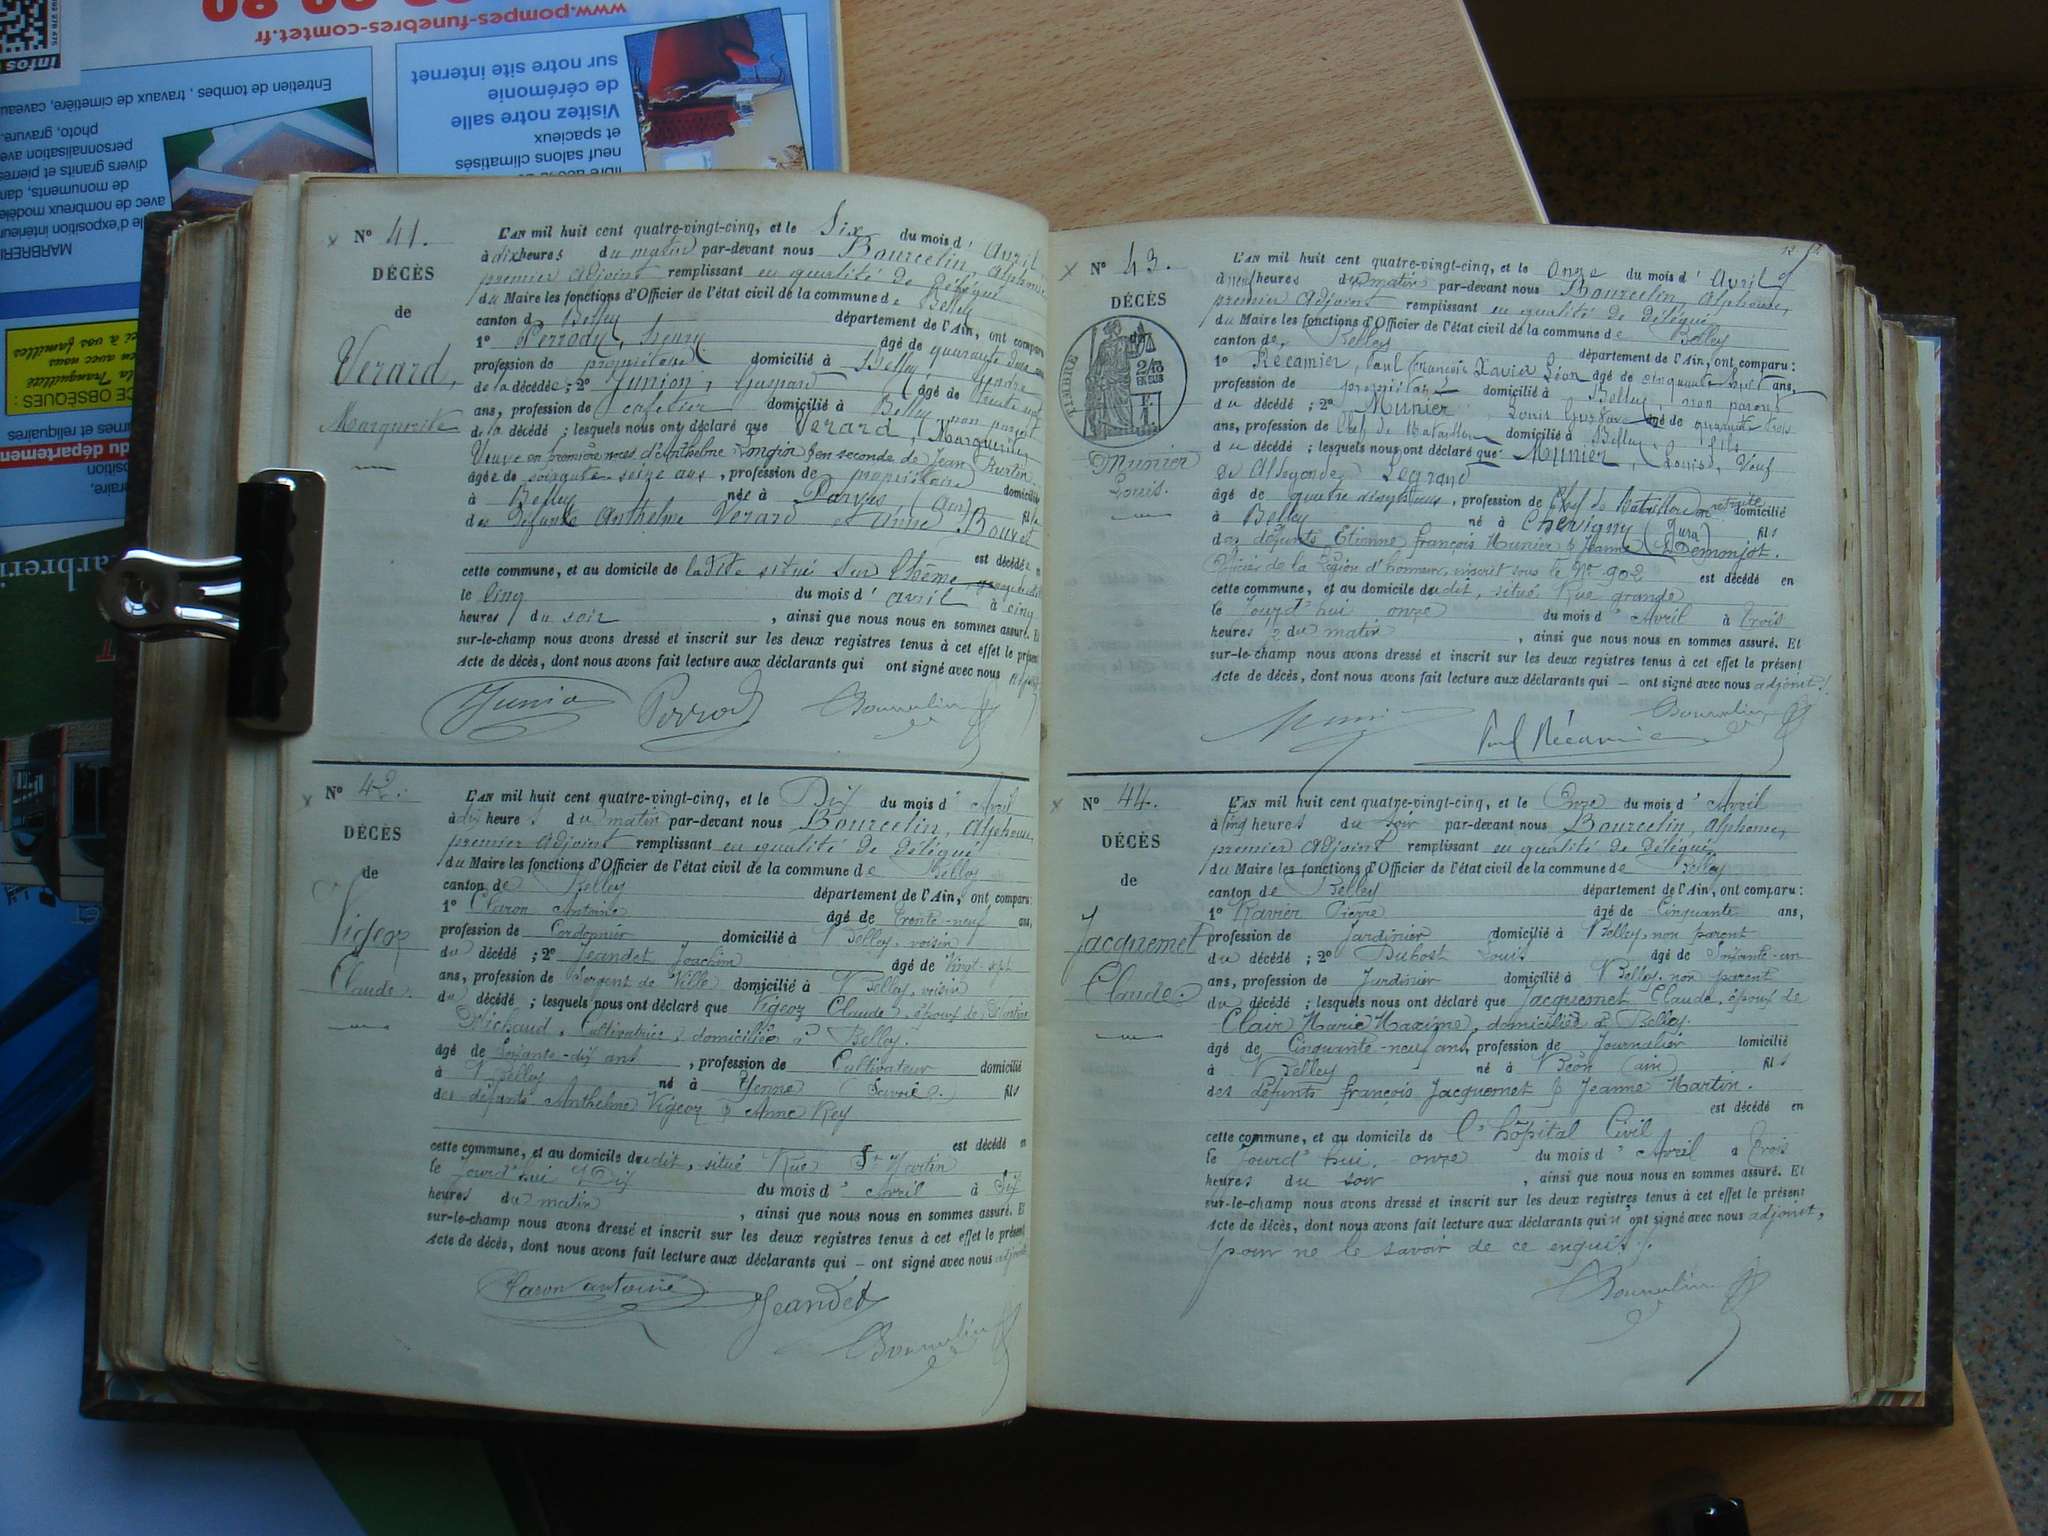 www.pompes-funebres-comtet.fr
infos
Entretien de tombes, travaux de cimetière, caveau
photo, gravure,
personnalisation ave
divers granits et pierres
de monuments, dans
avec de nombreux modèle
le d'exposition intérieur
MARBRERI
Visitez notre salle
de cérémonie
sur notre site internet
neuf salons climatisés
et spacieux
CE OBSÈQUES :
la Tranquillité
du départem
rnes et reliquaires
N° 41.
DÉCÈS
de
Verard,
Marguerite
L'AN mil huit cent quatre-vingt-cinq, et le Six du mois d' Avril
à dix heures du matin par-devant nous Bourcelin, Alphonse
premier adjoint remplissant en qualité de délégué
du Maire les fonctions d'Officier de l'état civil de la commune de Belley
canton de Belley département de l'Ain, ont comparu
1° Perrody, henry âgé de quarante deux
profession de propriétaire domicilié à Belley, gendre
de la décédée ; 2° Junion, Gaspard âgé de trente sept
ans, profession de cafetier domicilié à Belley non parent
de la décédé ; lesquels nous ont déclaré que Verard, Marguerite
Veuve en première noces d'Anthelme Longin & en seconde de Jean
âgée de soixante seize ans, profession de propriétaire domiciliée
à Belley née à Parves (Ain) fille
des défunts Anthelme Verard et Anne Bouvet
est décédée en
cette commune, et au domicile de la dite situé sur
le cinq du mois d' avril à cinq
heures du soir , ainsi que nous nous en sommes assuré. Et
sur-le-champ nous avons dressé et inscrit sur les deux registres tenus à cet effet le présent
Acte de décès, dont nous avons fait lecture aux déclarants qui ont signé avec nous
Junion Perrody Bourcelin
N° 42.
DÉCÈS
de
Vigeoz
Claude.
L'AN mil huit cent quatre-vingt-cinq, et le Dix du mois d' Avril
à dix heures du matin par-devant nous Bourcelin, Alphonse,
premier adjoint remplissant en qualité de délégué
du Maire les fonctions d'Officier de l'état civil de la commune de Belley
canton de Belley département de l'Ain, ont comparu:
1° Claron Antoine âgé de trente-neuf ans,
profession de Cordonnier domicilié à Belley, voisin
du décédé ; 2° Jeandet Joachim âgé de vingt-sept
ans, profession de Sergent de Ville domicilié à Belley, voisin
du décédé ; lesquels nous ont déclaré que Vigeoz Claude, époux de
Michaud, Cultivatrice, domiciliée à Belley.
âgé de soixante-dix ans, profession de Cultivateur domicilié
à Belley né à Yenne (Savoie). fils
des défunts Anthelme Vigeoz & Anne Rey
est décédé en
cette commune, et au domicile dudit, situé Rue St Martin
le Jourd'hui Dix du mois d' Avril à Six
heures du matin , ainsi que nous nous en sommes assuré. Et
sur-le-champ nous avons dressé et inscrit sur les deux registres tenus à cet effet le présent
Acte de décès, dont nous avons fait lecture aux déclarants qui – ont signé avec nous adjoint
Claron antoine Jeandet
Bourcelin
N° 43.
DÉCÈS
TIMBRE
Munier
Louis.
L'AN mil huit cent quatre-vingt-cinq, et le Onze du mois d' Avril
à neuf heures du matin par-devant nous Bourcelin, Alphonse,
premier adjoint remplissant en qualité de délégué
du Maire les fonctions d'Officier de l'état civil de la commune de Belley
canton de Belley département de l'Ain, ont comparu:
1° Récamier, Paul François Xavier Léon âgé de cinquante huit ans,
profession de propriétaire domicilié à Belley, non parent
du décédé ; 2° Munier, Louis Gustave âgé de quarante trois
ans, profession de Chef de Bataillon domicilié à Belley, fils
du décédé ; lesquels nous ont déclaré que Munier, Louis, veuf
de Aldegonde Legrand
âgé de quatre vingts ans, profession de Chef de Bataillon en retraite domicilié
à Belley né à Chevigny (Jura) fils
des défunts Etienne françois Munier & Jeanne Demonjot.
Officier de la Légion d'honneur, inscrit sous le N° 902 est décédé en
cette commune, et au domicile dudit, situé Rue grande
le Jourd'hui onze du mois d' Avril à trois
heures du matin , ainsi que nous nous en sommes assuré. Et
sur-le-champ nous avons dressé et inscrit sur les deux registres tenus à cet effet le présent
Acte de décès, dont nous avons fait lecture aux déclarants qui – ont signé avec nous adjoint.
Paul Récamier Bourcelin
N° 44.
DÉCÈS
de
Jacquemet
Claude.
L'AN mil huit cent quatre-vingt-cinq, et le Onze du mois d' Avril
à cinq heures du soir par-devant nous Bourcelin, Alphonse,
premier adjoint remplissant en qualité de délégué
du Maire les fonctions d'Officier de l'état civil de la commune de Belley
canton de Belley département de l'Ain, ont comparu:
1° Ravier Pierre âgé de Cinquante ans,
profession de Jardinier domicilié à Belley, non parent
du décédé ; 2° Dubost Louis âgé de Soixante-un
ans, profession de Jardinier domicilié à Belley. non parent
du décédé ; lesquels nous ont déclaré que Jacquemet Claude, époux de
Clair Marie Maxime, domiciliée à Belley.
âgé de Cinquante-neuf ans, profession de Journalier domicilié
à Belley né à Béon (ain) fils
des défunts françois Jacquemet & Jeanne Martin.
est décédé en
cette commune, et au domicile de l'hôpital Civil
le Jourd'hui, onze du mois d' Avril à trois
heures du soir , ainsi que nous nous en sommes assuré. Et
sur-le-champ nous avons dressé et inscrit sur les deux registres tenus à cet effet le présent
Acte de décès, dont nous avons fait lecture aux déclarants qui n'ont signé avec nous adjoint,
pour ne le savoir de ce enquis.
Bourcelin